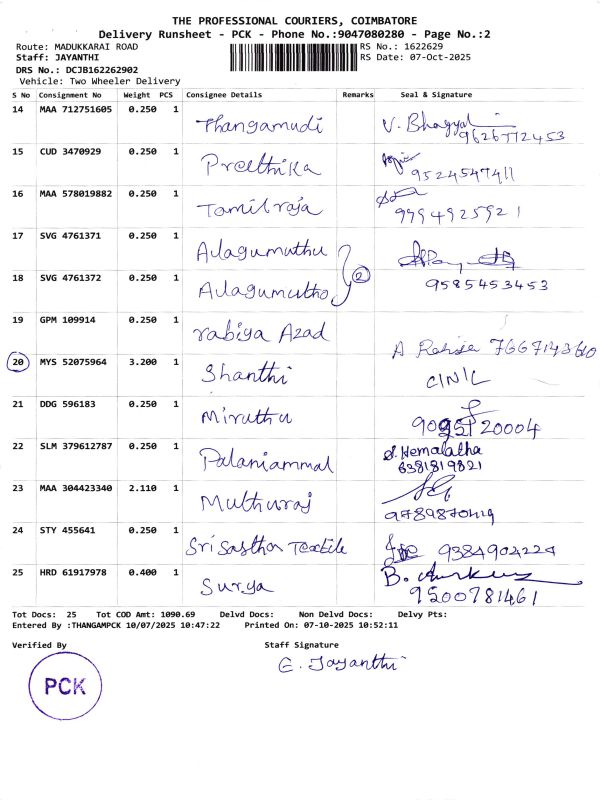 THE PROFESSIONAL COURIERS, COIMBATORE
Delivery Runsheet - PCK - Phone No.:9047080280 - Page No.:2
Route: MADUKKARAI ROAD RS No.: 1622629
Staff: JAYANTHI RS Date: 07-Oct-2025
DRS No.: DCJB162262902
Vehicle: Two Wheeler Delivery
S No Consignment No Weight PCS Consignee Details Remarks Seal & Signature
14 MAA 712751605 0.250 1 Thangamudi V. Bhagyal
9626772453
15 CUD 3470929 0.250 1 Preethika
9524547411
16 MAA 578019882 0.250 1 Tamilraja
9994925921
17 SVG 4761371 0.250 1 Alagumuthu
2
18 SVG 4761372 0.250 1 Alagumutho 9585453453
19 GPM 109914 0.250 1 rabiya Azad
A 7667143610
20 MYS 52075964 3.200 1 Shanthi CINIL
21 DDG 596183 0.250 1 Miruthu 20004
22 SLM 379612787 0.250 1 Palaniammal S. Hemalatha
6381819821
23 MAA 304423340 2.110 1 Muthuraj
24 STY 455641 0.250 1 Sri Sastha Textile 9384904224
25 HRD 61917978 0.400 1 Surya B.
9500781461
Tot Docs: 25 Tot COD Amt: 1090.69 Delvd Docs: Non Delvd Docs: Delvy Pts:
Entered By :THANGAMPCK 10/07/2025 10:47:22 Printed On: 07-10-2025 10:52:11
Verified By Staff Signature
E. Jayanthi
PCK